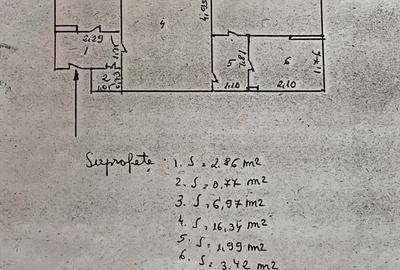 4,95
4
2.29
1
1.25
5
1.81
6
2
1.05
0.73
1.10
2.10
Suprafețe: 1. S = 2.86 m2
2. S = 0,77 m2
3. S = 6,97 m2
4. S = 16,34 m2
5. S = 1,99 m2
6. S = 3.42 m2